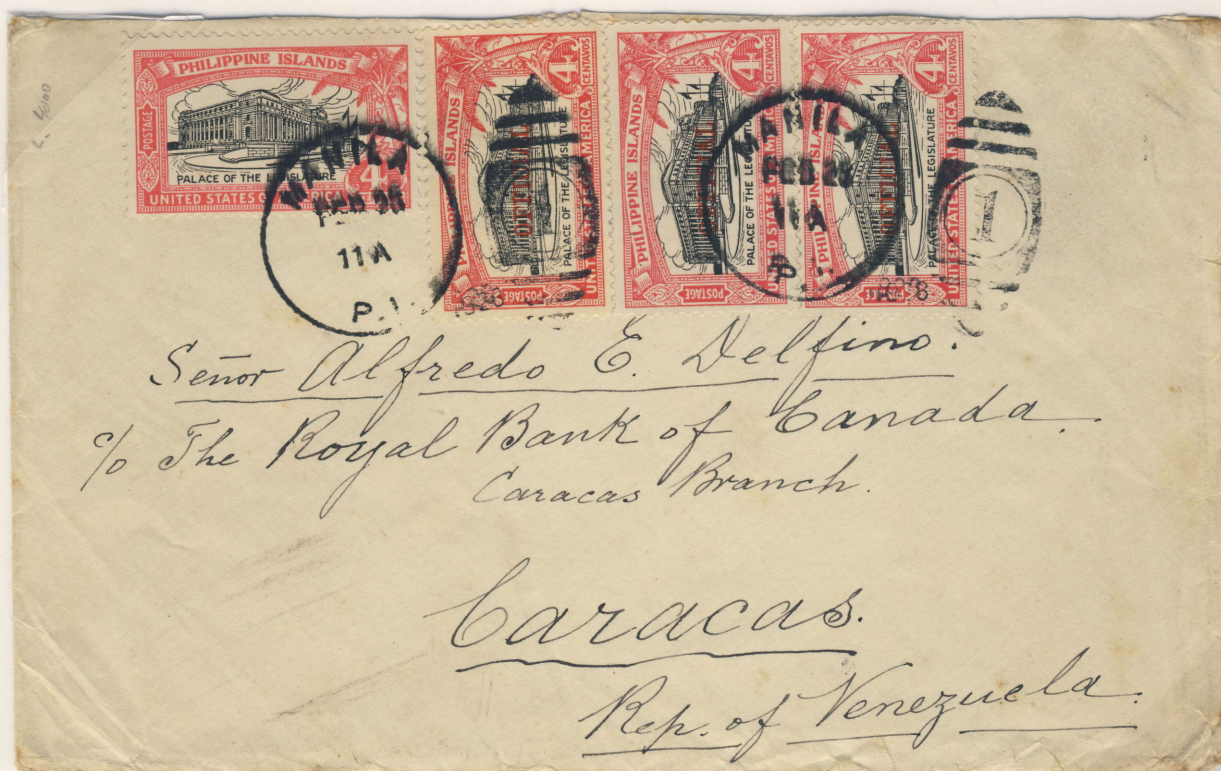 4000
PHILIPPINE ISLANDS
POSTAGE
PALACE OF THE LEGISLATURE
4
UNITED STATES OF
MANILA
FEB 28
11 A
P.I.
PHILIPPINE ISLANDS
4 CENTAVOS
PALACE OF THE LEGISLATURE
UNITED STATES OF AMERICA
POSTAGE
1928
PHILIPPINE ISLANDS
4 CENTAVOS
PALACE OF THE LEGISLATURE
UNITED STATES OF AMERICA
POSTAGE
MANILA
FEB 28
11 A
P.I.
PHILIPPINE ISLANDS
4 CENTAVOS
PALACE OF THE LEGISLATURE
UNITED STATES OF AMERICA
POSTAGE
1
Señor Alfredo E. Delfino.
c/o The Royal Bank of Canada.
Caracas Branch.
Caracas.
Rep. of Venezuela.